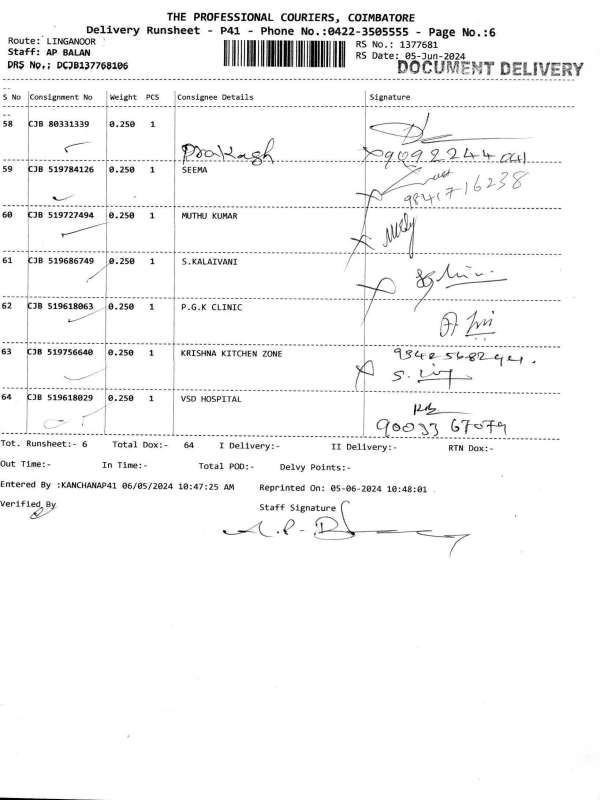 THE PROFESSIONAL COURIERS, COIMBATORE
Delivery Runsheet - P41 - Phone No.:0422-3505555 - Page No.:6
Route: LINGANOOR
RS No.: 1377681
Staff: AP BALAN
RS Date: 05-Jun-2024
DRS No.: DCJB137768106
DOCUMENT DELIVERY
S No Consignment No Weight PCS Consignee Details Signature
58 CJB 80331339 0.250 1
Prakash
59 CJB 519784126 0.250 1 SEEMA
9841716238
60 CJB 519727494 0.250 1 MUTHU KUMAR
61 CJB 519686749 0.250 1 S.KALAIVANI
62 CJB 519618063 0.250 1 P.G.K CLINIC
63 CJB 519756640 0.250 1 KRISHNA KITCHEN ZONE
64 CJB 519618029 0.250 1 VSD HOSPITAL
90033 67079
Tot. Runsheet:- 6 Total Dox:- 64 I Delivery:- II Delivery:- RTN Dox:-
Out Time:- In Time:- Total POD:- Delvy Points:-
Entered By :KANCHANAP41 06/05/2024 10:47:25 AM Reprinted On: 05-06-2024 10:48:01
Verified By
Staff Signature